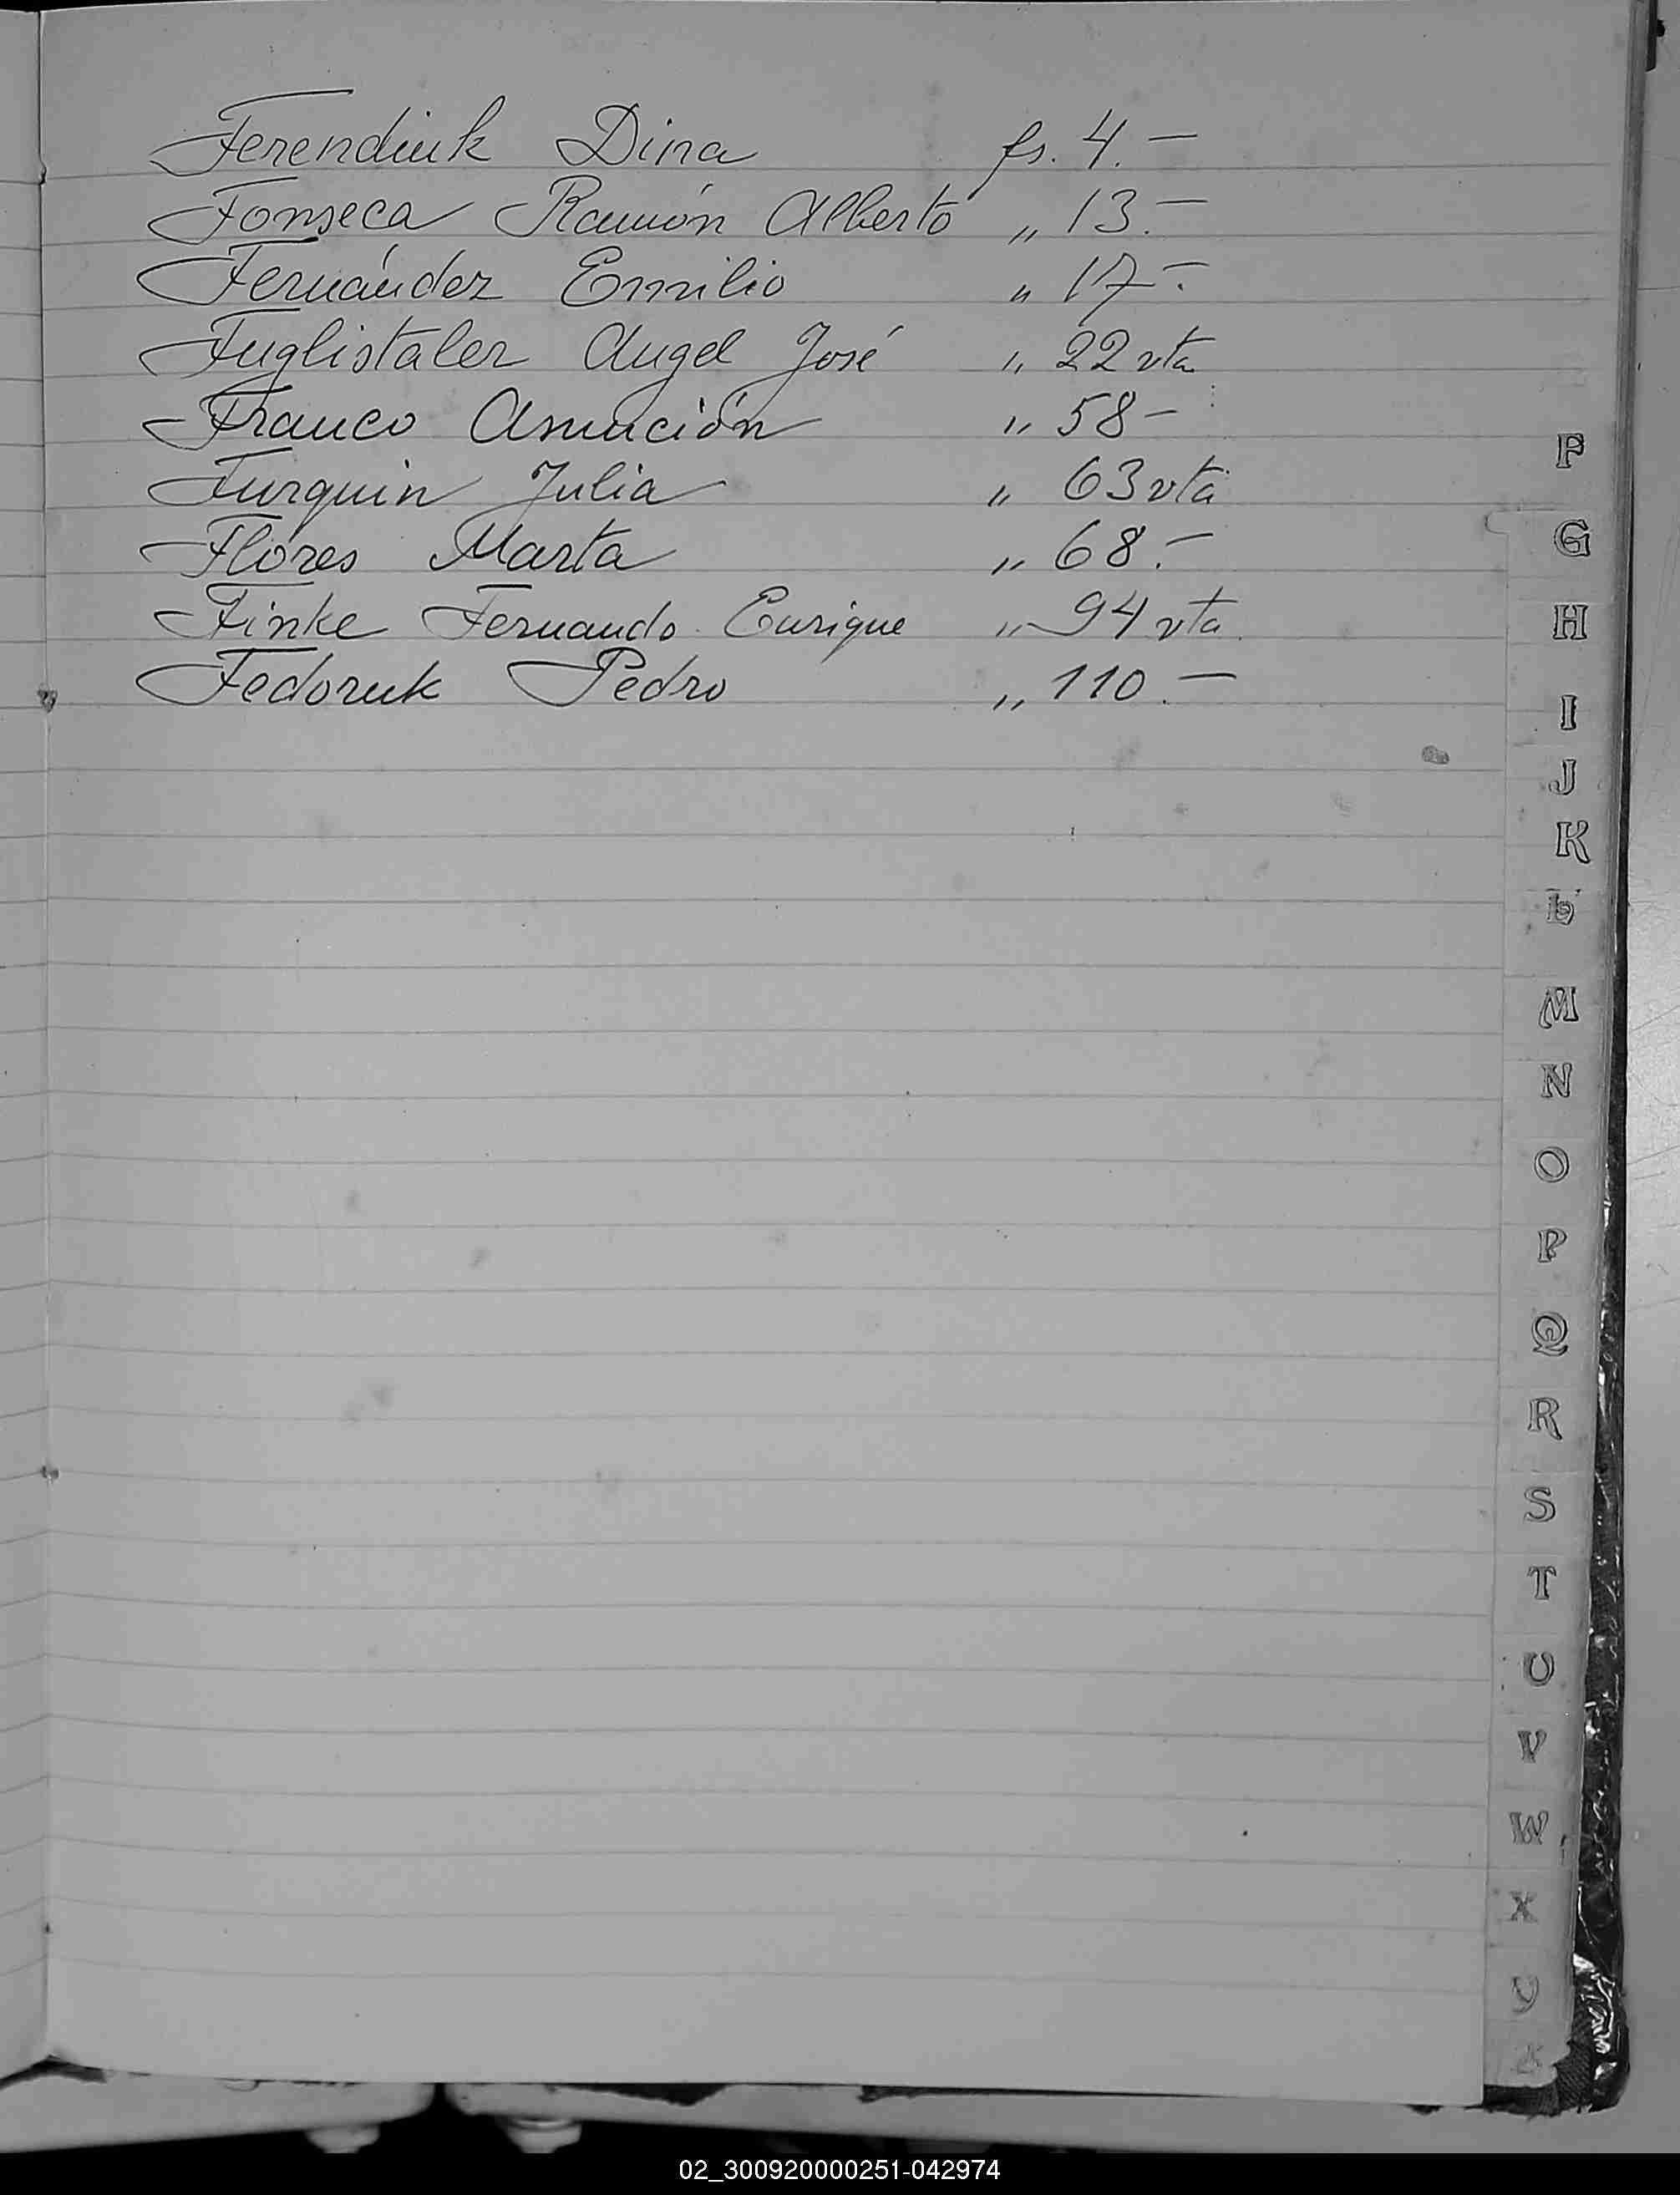 Ferendiuk Dina fs. 4.—
Fonseca Ramón Alberto „ 13.—
Fernández Emilio „ 17.—
Fuglistaler Angel José „ 22 vta
Franco Asunción „ 58—
Furquin Julia „ 63 vta
Flores Marta „ 68.—
Finke Fernando Enrique „ 94 vta.
Fedoruk Pedro „ 110.—
F
G
H
I
J
K
L
M
N
O
P
Q
R
S
T
U
V
W
X
Y
Z
02_300920000251-042974